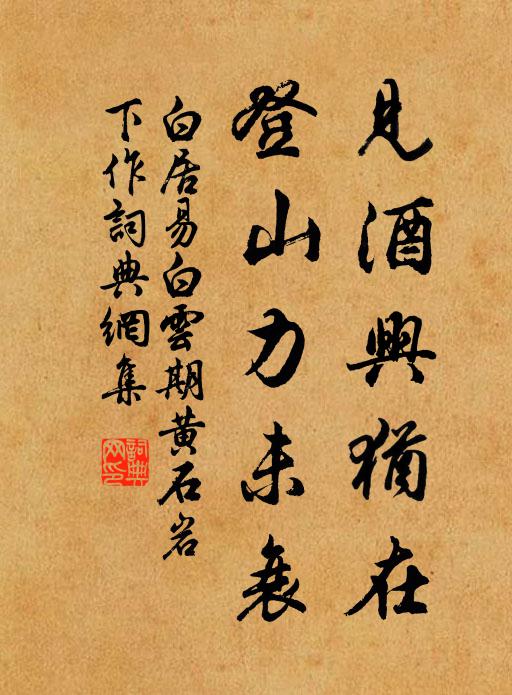 見酒興猶在
登山力未衰
白居易白雲期黄石岩
下作詞典網集
詞典網印